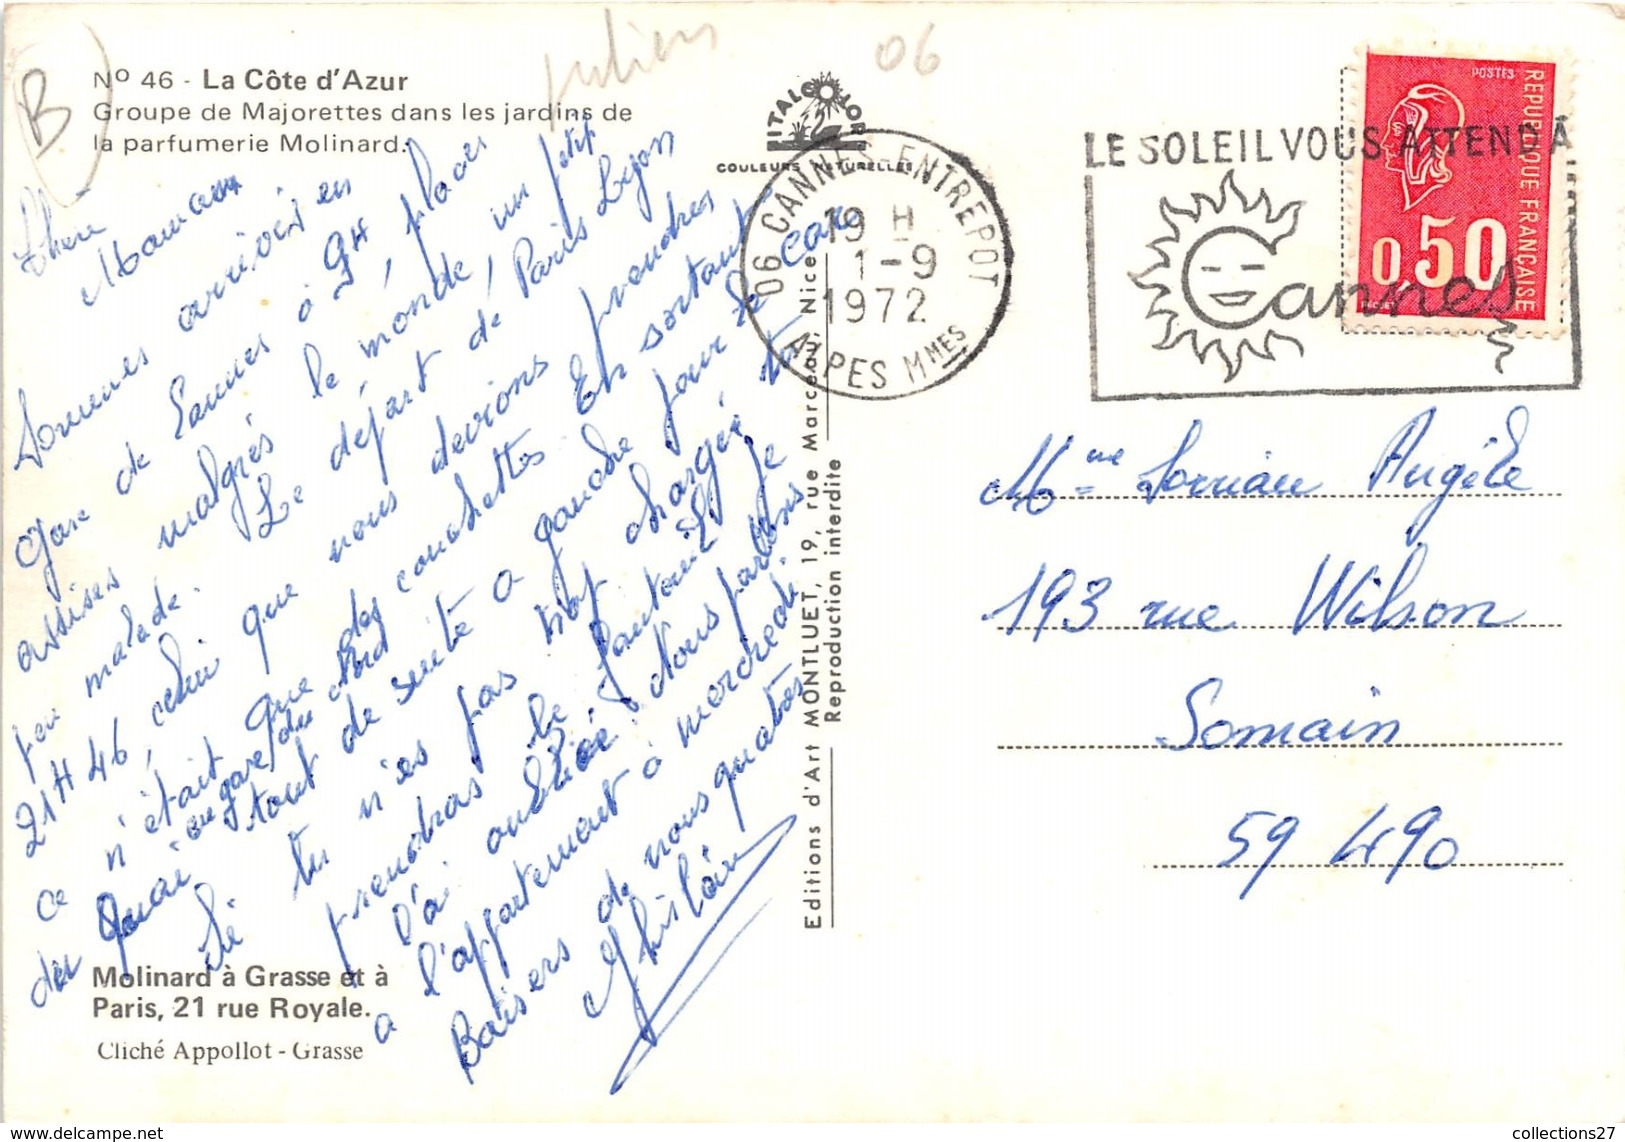 B
juliers
06
Nº 46 - La Côte d'Azur
Groupe de Majorettes dans les jardins de
la parfumerie Molinard.
Chere
Maman
Sommes arrivés en
gare de Cannes à 9H, places
assises malgrés le monde, un petit
peu malade. Le départ de Paris Lyon
21H46, celui que nous devions prendre
ce n'était que des couchettes. En sortant
du Quai tout de suite a gauche pour le care
au gare du Nord
si tu n'es pas trop chargée tu
prendras le fauteuil je
l'ai oublié. Nous partons
a l'appartement a mercredi
Baisers de nous quatres
Ghislain
Molinard à Grasse et à
Paris, 21 rue Royale.
Cliché Appollot - Grasse
ITALCOLOR
COULEURS NATURELLES
Editions d'Art MONTLUET, 19, rue Marceau, Nice
Reproduction interdite
06 CANNES-ENTREPOT
19 H
1-9
1972
ALPES MMES
LE SOLEIL VOUS ATTEND À
Cannes
POSTES
REPUBLIQUE FRANÇAISE
0,50
Mme Lorriau Angèle
193 rue Wilson
Somain
59 490
collections27